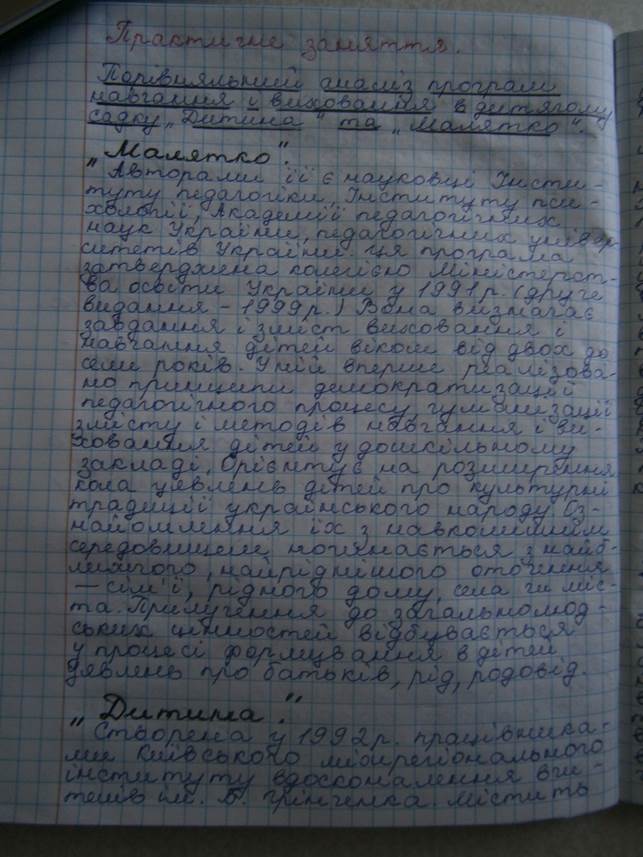 Практичне заняття.
Порівняльний аналіз програм
навчання і виховання в дитячому
садку „Дитина" та „Малятко".
„Малятко".
Авторами її є науковці Інсти-
туту педагогіки, Інституту пси-
хології, Академії педагогічних
наук України, педагогічних універ-
ситетів України. Ця програма
затверджена колегією Міністерст-
ва освіти України у 1991р. (друге
видання - 1999р.) Вона визначає
завдання і зміст виховання і
навчання дітей віком від двох до
семи років. У ній вперше реалізова-
но принципи демократизації
педагогічного процесу, гуманізації
змісту і методів навчання і ви-
ховання дітей у дошкільному
закладі. Орієнтує на розширення
кола уявлень дітей про культурні
традиції українського народу. Оз-
найомлення їх з навколишнім
середовищем починається з найб-
лижчого, найріднішого оточення
— сім'ї, рідного дому, села чи міс-
та. Прилучення до загальнолюд-
ських цінностей відбувається
у процесі формування в дітей
уявлень про батьків, рід, родовід.
„Дитина".
Створена у 1992р. працівника-
ми Київського міжрегіонального
інституту вдосконалення вчи-
телів ім. Б. Грінченка. Містить